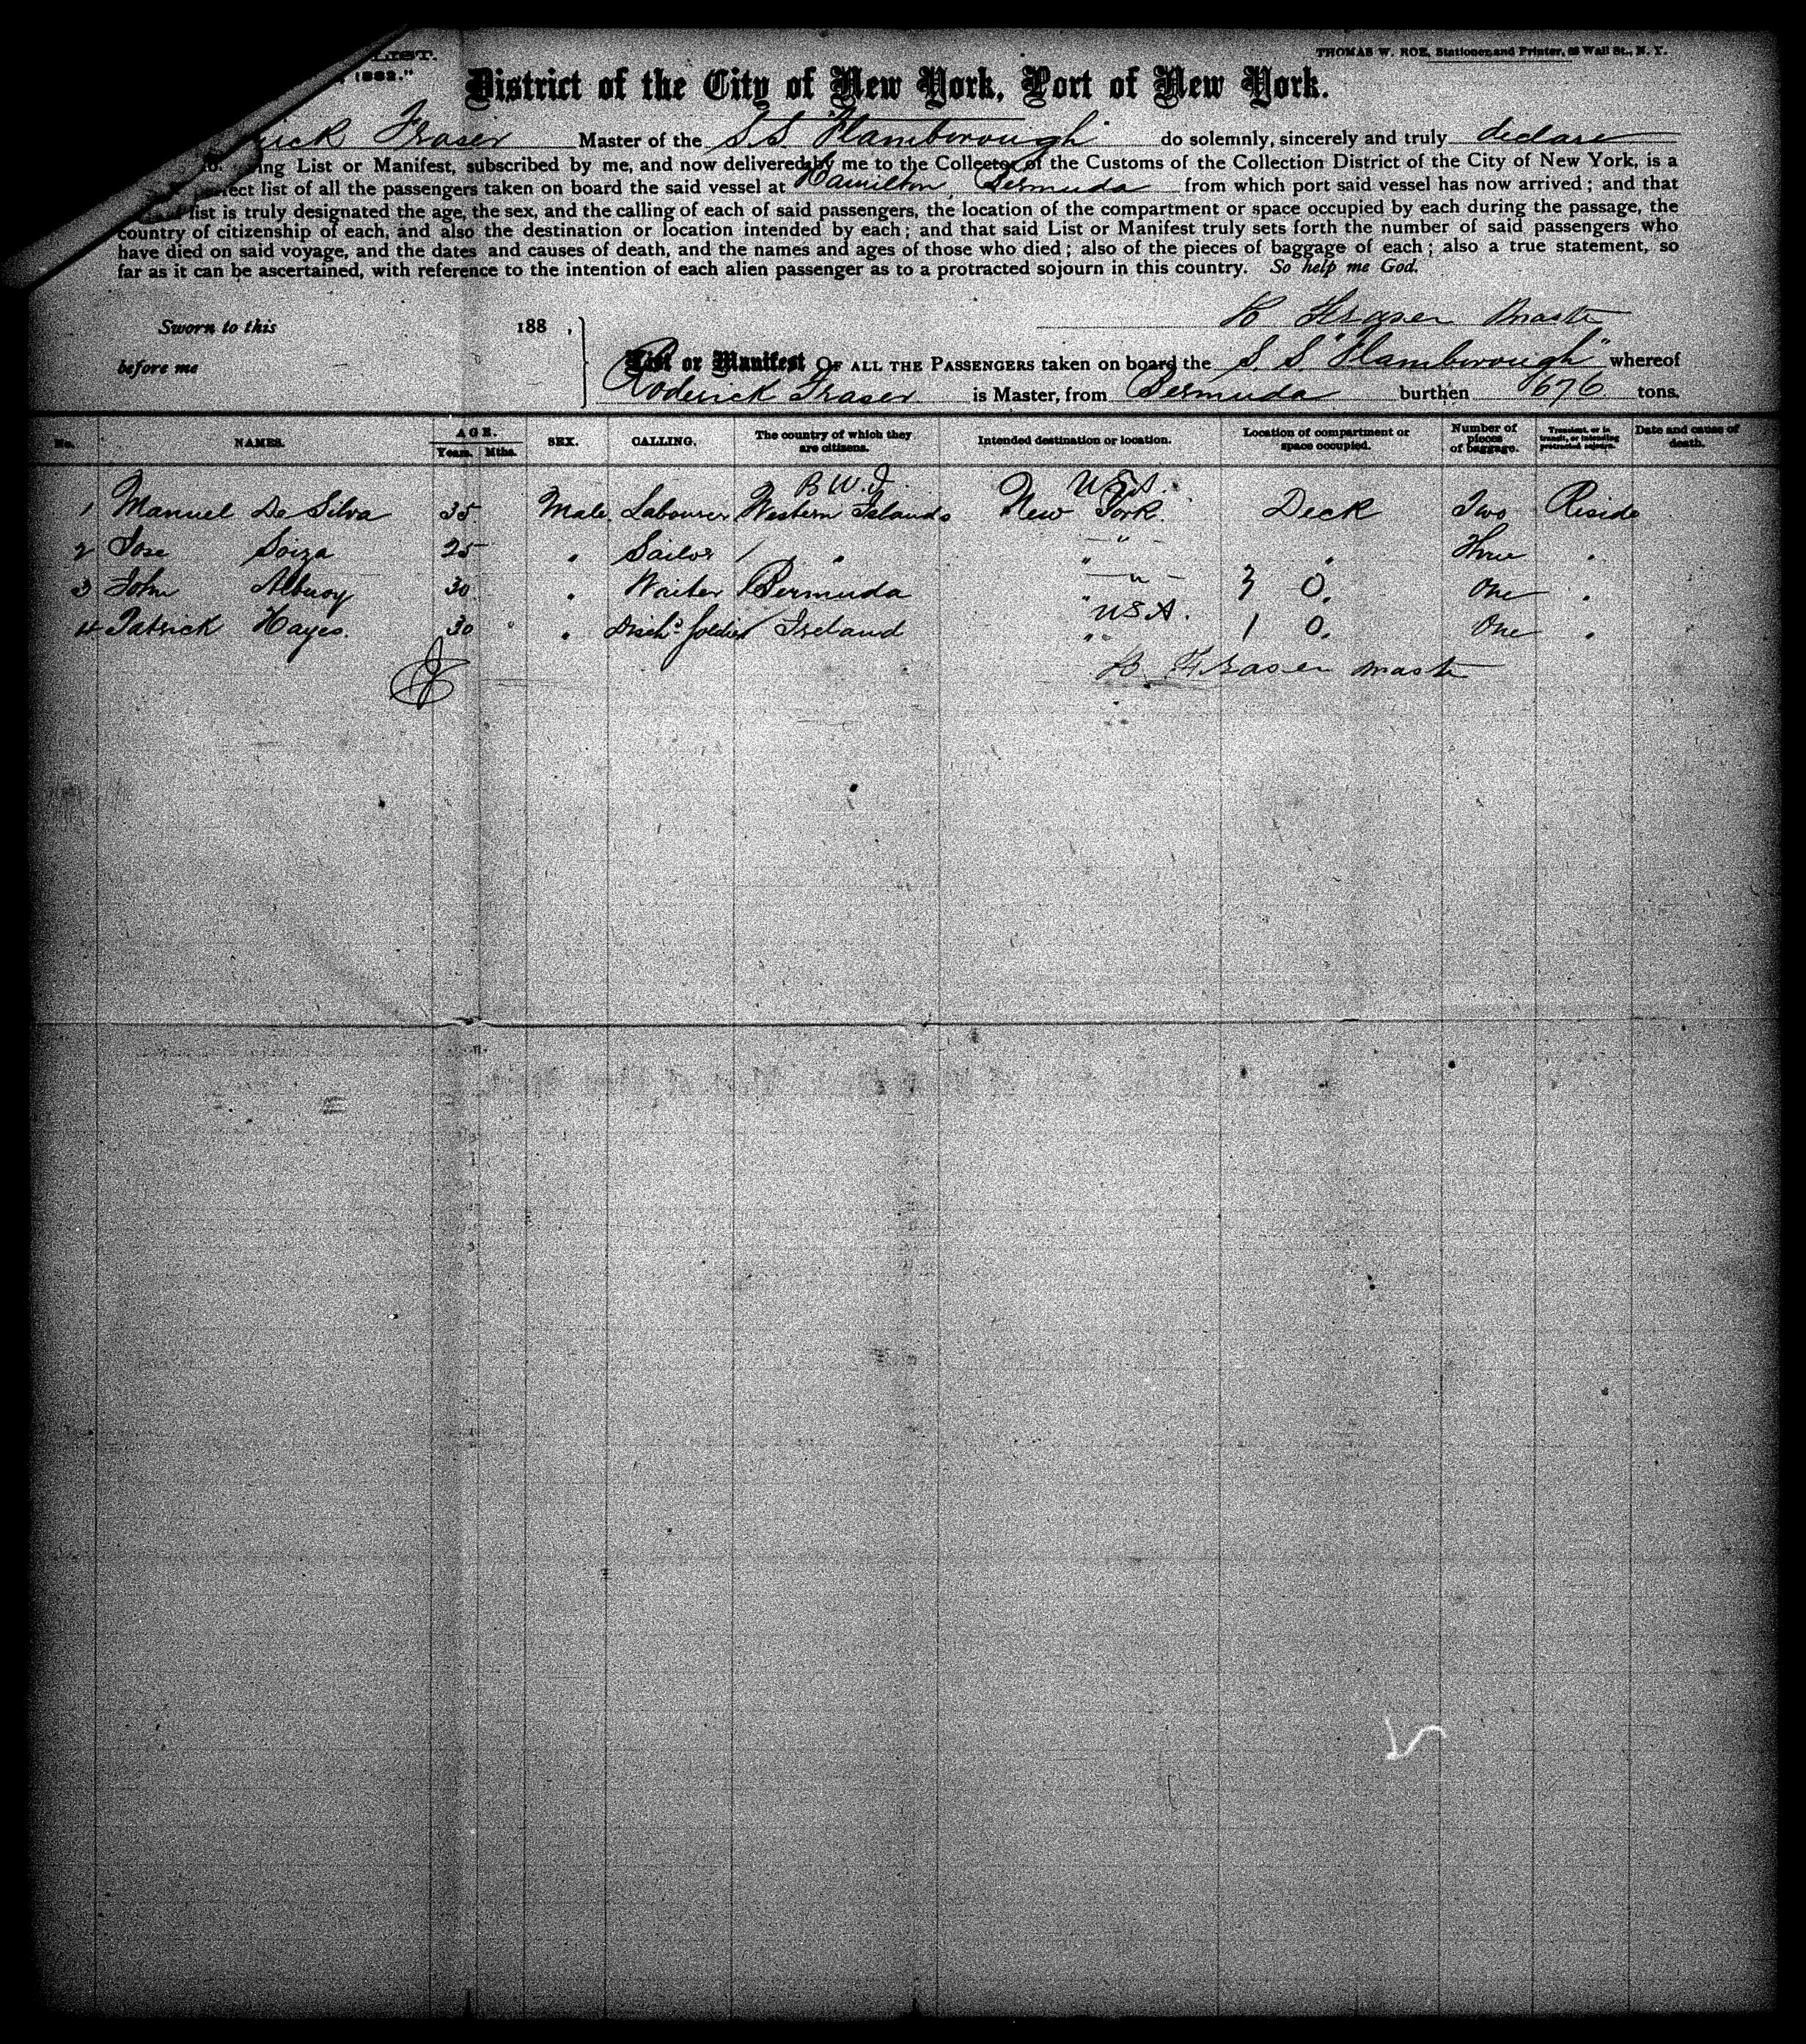 LIST.
1882."
THOMAS W. ROE, Stationer and Printer, Wall St., N. Y.
District of the City of New York, Port of New York.
rick Fraser Master of the S.S. "Flamborough" do solemnly, sincerely and truly declare
ing List or Manifest, subscribed by me, and now delivered by me to the Collector of the Customs of the Collection District of the City of New York, is a
list of all the passengers taken on board the said vessel at Hamilton Bermuda from which port said vessel has now arrived; and that
list is truly designated the age, the sex, and the calling of each of said passengers, the location of the compartment or space occupied by each during the passage, the
country of citizenship of each, and also the destination or location intended by each; and that said List or Manifest truly sets forth the number of said passengers who
have died on said voyage, and the dates and causes of death, and the names and ages of those who died; also of the pieces of baggage of each; also a true statement, so
far as it can be ascertained, with reference to the intention of each alien passenger as to a protracted sojourn in this country. So help me God.
R Fraser Master
Sworn to this 188 ,
before me
List or Manifest OF ALL THE PASSENGERS taken on board the S. S "Flamborough" whereof
Roderick Fraser is Master, from Bermuda burthen 676 tons.
No. NAMES. AGE. Years. Mths. SEX. CALLING. The country of which they are citizens. Intended destination or location. Location of compartment or space occupied. Number of pieces of baggage. Transient, or in transit, or intending protracted sojourn. Date and cause of death.
B W. I. U.S.A.
1 Manuel De Silva 35 Male Labourer Western Islands New York Deck Two Reside
2 Jose Soiza 25 " Sailor " " " Three "
3 John Albuoy 30 " Waiter Bermuda " 3 O. One "
U S A.
4 Patrick Hayes. 30 " Disch'd Soldier Ireland " 1 O. One "
R Fraser Master